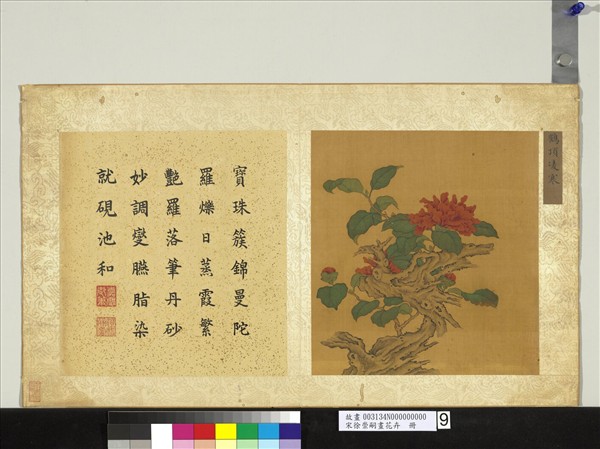 鶴頂凌寒
寶珠簇錦曼陀
羅爍日蒸霞繁
艷羅落筆丹砂
妙調燮臙脂染
就硯池和
故畫 003134N000000000
宋徐崇嗣畫花卉 冊
9